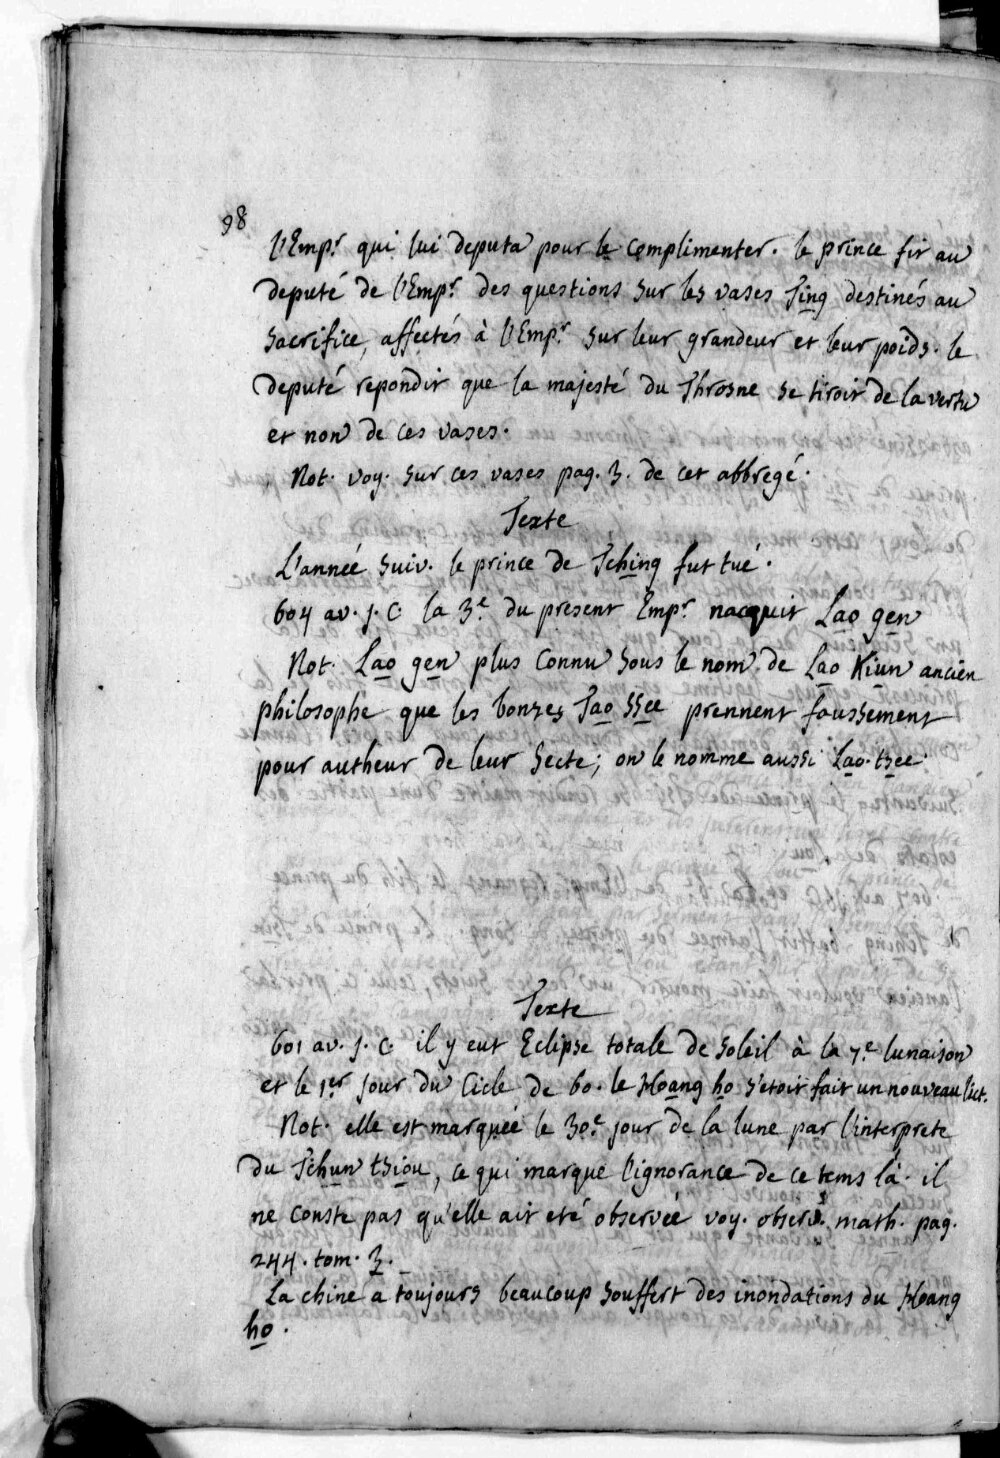 98
l'Emp.r qui lui deputa pour le complimenter. le prince fit au
deputé de l'Emp.r des questions sur les vases Ting destinés au
sacrifice, affectés à l'Emp.r sur leur grandeur et leur poids. le
deputé repondit que la majesté du Throsne se tiroit de la vertu
et non de ces vases.
Not. voy. sur ces vases pag. 3. de cet abbregé.
Texte
L'année suiv. le prince de Tching fut tué.
604 av. j. C. la 3.e du present Emp.r nacquit Lao gen
Not. Lao gen plus connu sous le nom de Lao Kiun ancien
philosophe que les bonzes Tao ssee prennent faussement
pour autheur de leur secte; on le nomme aussi Lao-tsee.
Texte
601 av. j. C. il y eut Eclipse totale de soleil à la 7.e lunaison
et le 1.er jour du Cicle de 60. le Hoang ho s'etoit fait un nouveau lict.
Not. elle est marquée le 30.e jour de la lune par l'interprete
du Tchun tsiou, ce qui marque l'ignorance de ce tems là. il
ne conste pas qu'elle ait eté observée voy. observ.s math. pag.
244. tom. 3.
La chine a toujours beaucoup souffert des inondations du Hoang
ho.